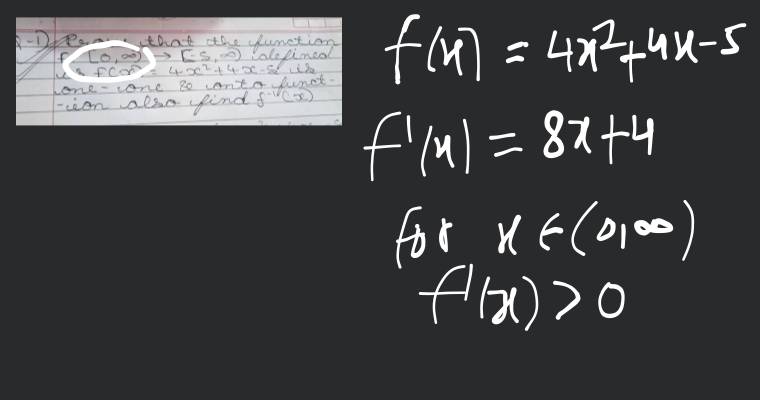 Q-1) Prove that the function
f: [0,∞) → [-5,∞) defined
as f(x) = 4x²+4x-5 is
one-one & onto funct-
-ion also find f⁻¹(x)
f(x) = 4x²+4x-5
f'(x) = 8x+4
for x ∈ (0,∞)
f'(x) > 0